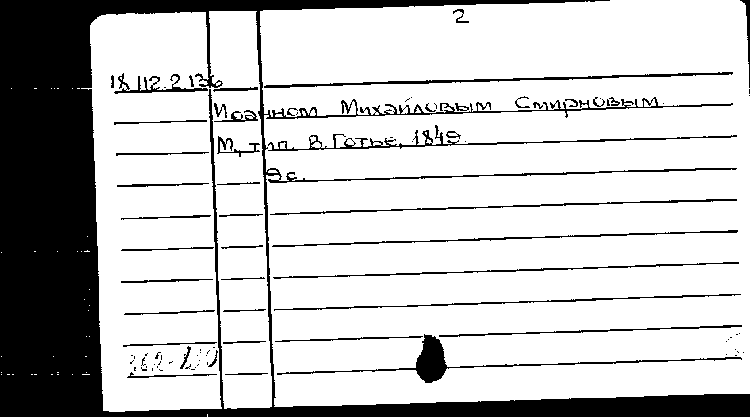 2
18.112.2.136
Иоанном Михайловым Смирновым.
М, тип. В. Готье, 1849.
9 с.